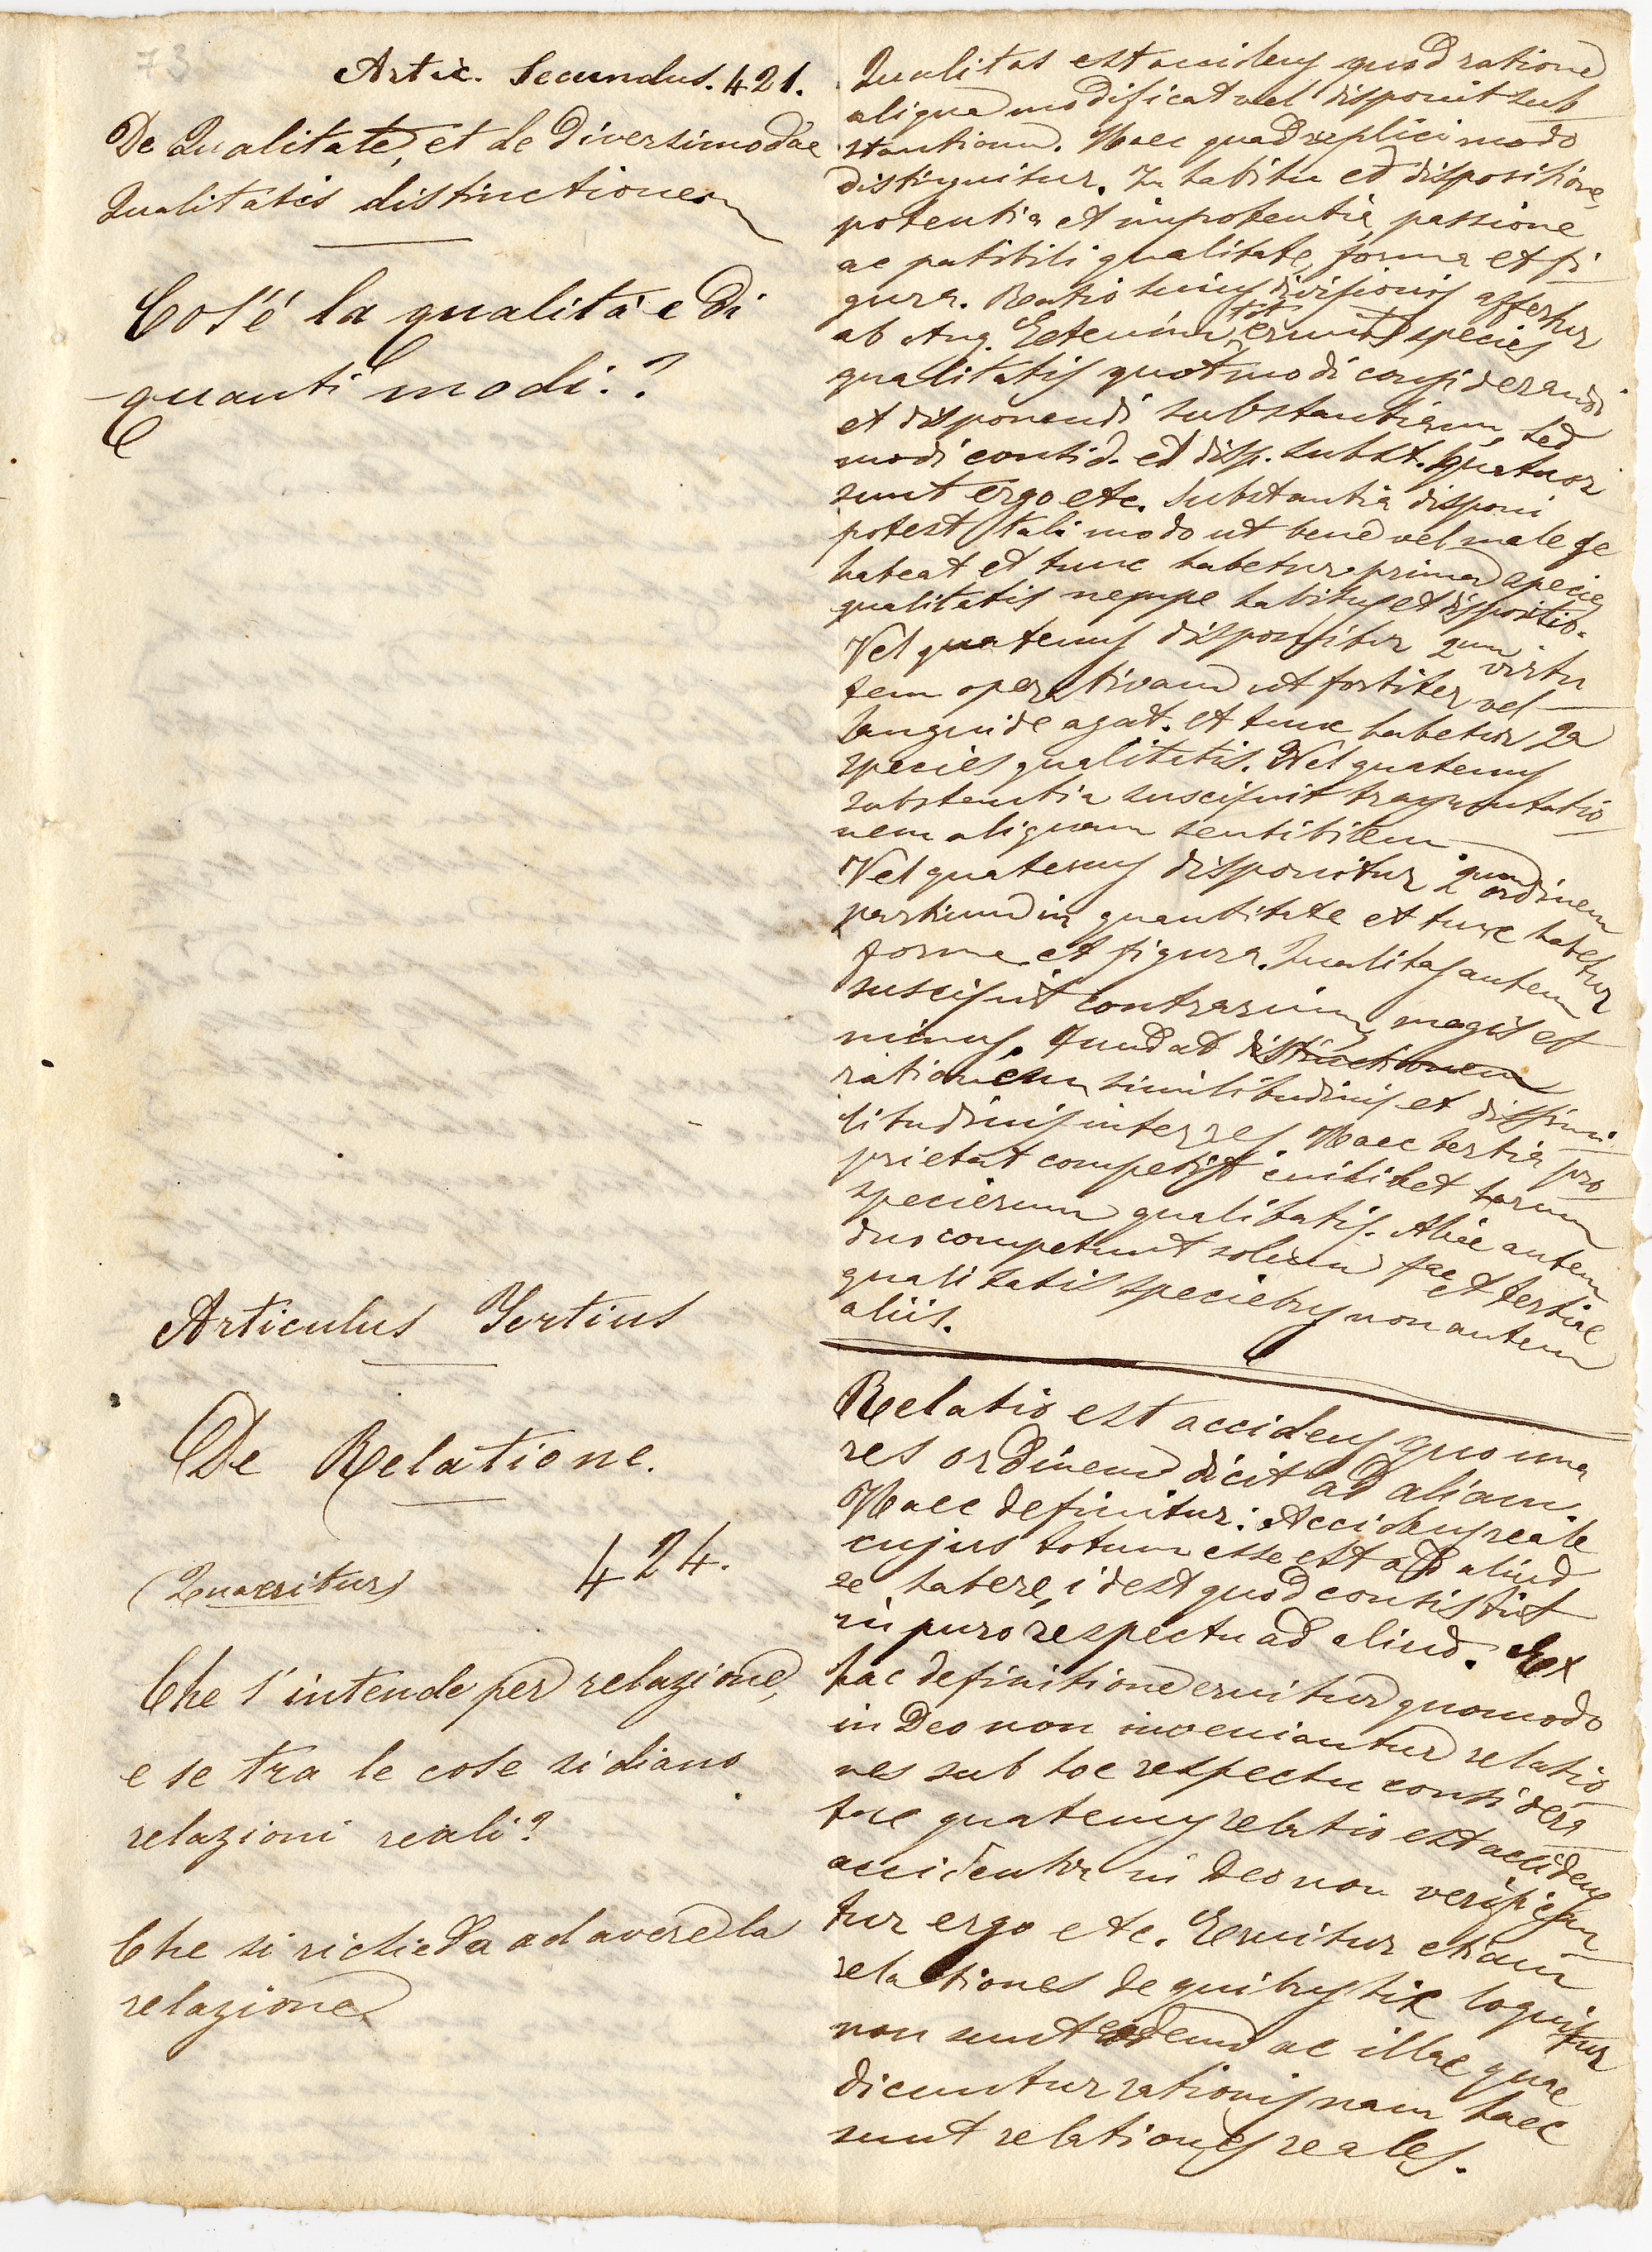 73
Artic. Secundus. 421.
De Qualitate, et de diversimodae
Qualitatis distinctionem
Cos'é la qualità e di
quanti modi.?
Articulus Tertius
De Relatione.
424.
(Quaeritur)
Che s'intende per relazione,
e se tra le cose si diano
relazioni reali?
Che si richieda ad avere la
relazione
Qualitas est accidens quod ratione
aliqua modificat vel disponit sub
stantiam. Haec quadruplici modo
distinguitur. In habitu et dispositione,
potentia et impotentia, passione
ac patibili qualitate, forma et fi
gura. Ratio hujus divisionis affertur
ab Ang. Etenim tot erunt species
qualitatis quot modi considerandi
et disponendi substantiam, sed
modi consid. et disp. subst. quatuor
sunt ergo etc. Substantia disponi
potest tali modo ut bene vel male se
habeat et tunc habetur prima species
qualitatis nempe habitus et dispositio.
Vel quatenus disponitur 2um virtu
tem operativam ut fortiter vel
languide agat. et tunc habetur 2a
species qualitatis. Vel quatenus
substantia suscipit trasmutatio
nem aliquam sensibilem
Vel quatenus disponitur 2um ordinem
partium in quantitate et tunc habetur
forma et figura. Qualitas autem
suscipit contrarium, magis et
minus, fundat distinctionem
rationem similitudinis et dissimi
litudinis inter res Haec tertia pro
prietat competit cuilibet harum
specierum qualitatis. Aliae autem
duo competunt solum 1ae et tertiae
qualitatis speciebus non autem
aliis.
Relatio est accidens quo una
res ordinem dicit ad aliam.
Haec definitur: Accidens reale
cujus totum esse est ad aliud
se habere, idest quod consistit
in puro respectu ad aliud. Ex
hac definitione eruitur quomodo
in Deo non inveniantur relatio
nes sub hoc respectu considera
tae quatenus relatio est accidens
accidentia in Deo non verifican
tur ergo etc. Eruitur etiam
relationes de quibus hic loquitur
non sunt eaedem ac illae quae
dicuntur rationis nam haec
sunt relationes reales.